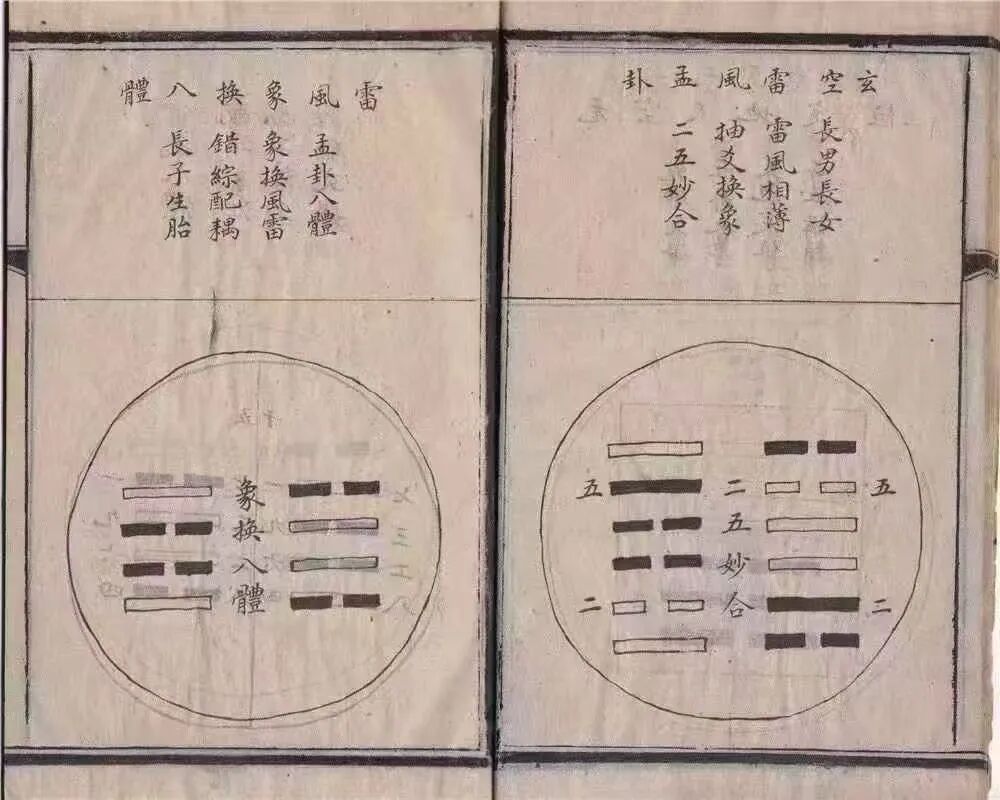 玄空雷風孟卦
長男長女
雷風相薄
抽爻換象
二五妙合
五
二
二五妙合
五
二
雷風象換八體
孟卦八體
象換風雷
錯綜配耦
長子生胎
象換八體